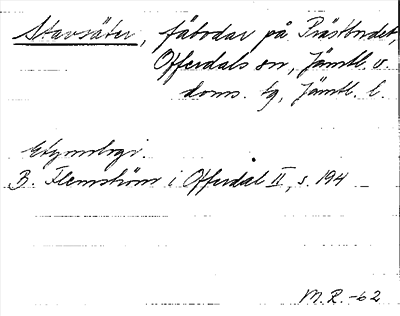 Stavsäter, fäbodar på Prästbordet,
Offerdals sn, Jämtl. v.
doms. tg, Jämtl. l.
Etymologi.
B. Flemström i Offerdal II, s. 194
M.R. -62